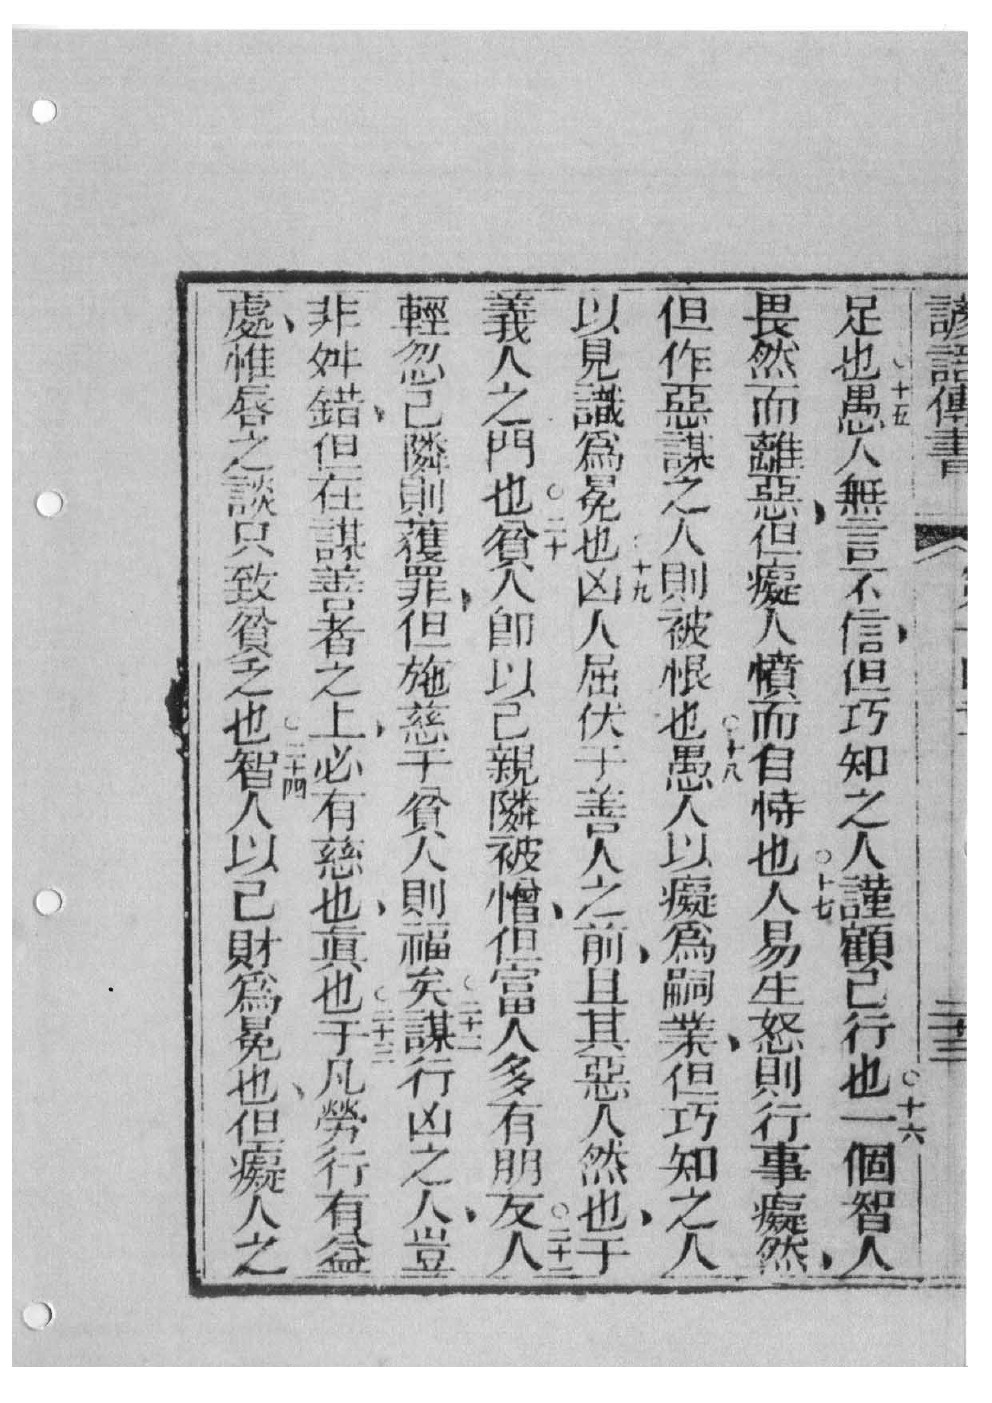 諺語傳書
足也○十五愚人無言不信但巧知之人謹顧己行也○十六一個智人
畏然而離惡但癡人憤而自恃也○十七人易生怒則行事癡然
但作惡謀之人則被恨也○十八愚人以癡爲嗣業但巧知之人
以見識爲冕也○十九凶人屈伏于善人之前且其惡人然也于
義人之門也○二十貧人卽以己親隣被憎但富人多有朋友○二十一人
輕忽己隣則獲罪但施慈于貧人則福矣○二十二謀行凶之人豈
非舛錯但在謀善者之上必有慈也眞也○二十三于凡勞行有益
處惟唇之談只致貧乏也○二十四智人以己財爲冕也但癡人之